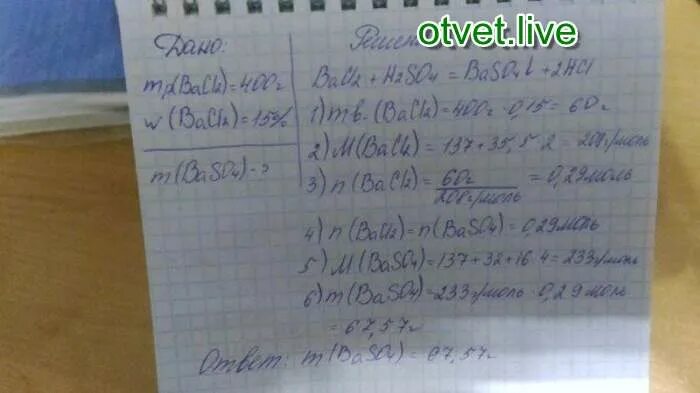 otvet.live
Дано:
Решен
m(BaCl2)=400г
w(BaCl2)=15%
m(BaSO4)-?
BaCl2+H2SO4=BaSO4↓+2HCl
1) mв. (BaCl2)=400г·0,15=60г
2) M(BaCl2)=137+35,5·2=208г/моль
3) n(BaCl2)=60г/208г/моль=0,29моль
4) n(BaCl2)=n(BaSO4)=0,29моль
5) M(BaSO4)=137+32+16·4=233г/моль
6) m(BaSO4)=233г/моль·0,29моль
=67,57г
Ответ: m(BaSO4)=67,57г